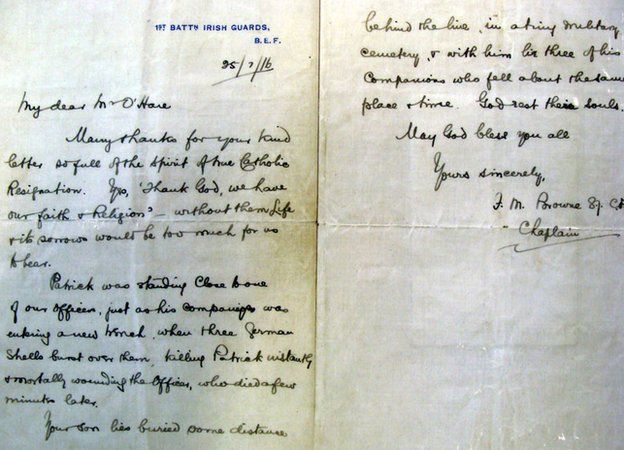 1ST BATTN IRISH GUARDS,
B.E.F.
25/7/16
My dear Mr O'Hare
Many thanks for your kind
letter so full of the spirit of true Catholic
Resignation. Yes, "Thank God, we have
our faith & Religion" – without them Life
& its sorrows would be too much for us
to bear.
Patrick was standing close to one
of our officers, just as his company was
entering a new trench, when three German
Shells burst over them, killing Patrick instantly
& mortally wounding the Officer, who died a few
minutes later.
Your son lies buried some distance
behind the line, in a tiny military
cemetery, & with him lie three of his
Companions who fell about the same
place & time. God rest their souls.
May God bless you all
Yours sincerely,
F. M. Browne SJ. C.F.
Chaplain